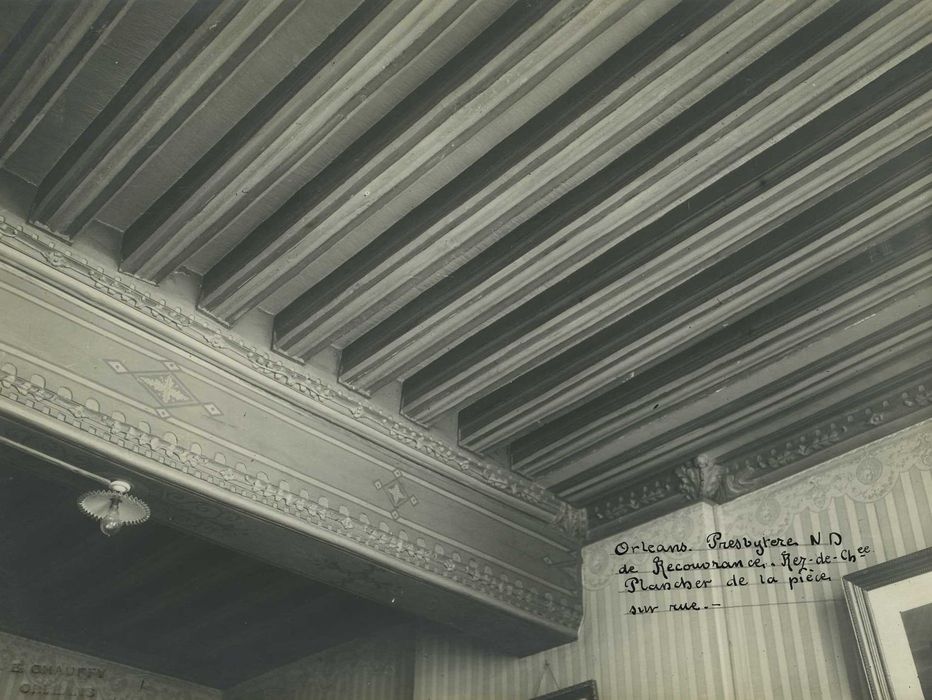 Orleans. Presbytere N D
de Recouvrance. Rez-de-Chee
Plancher de la pièce
sur rue.-
E. CHAUFFY
ORLEANS